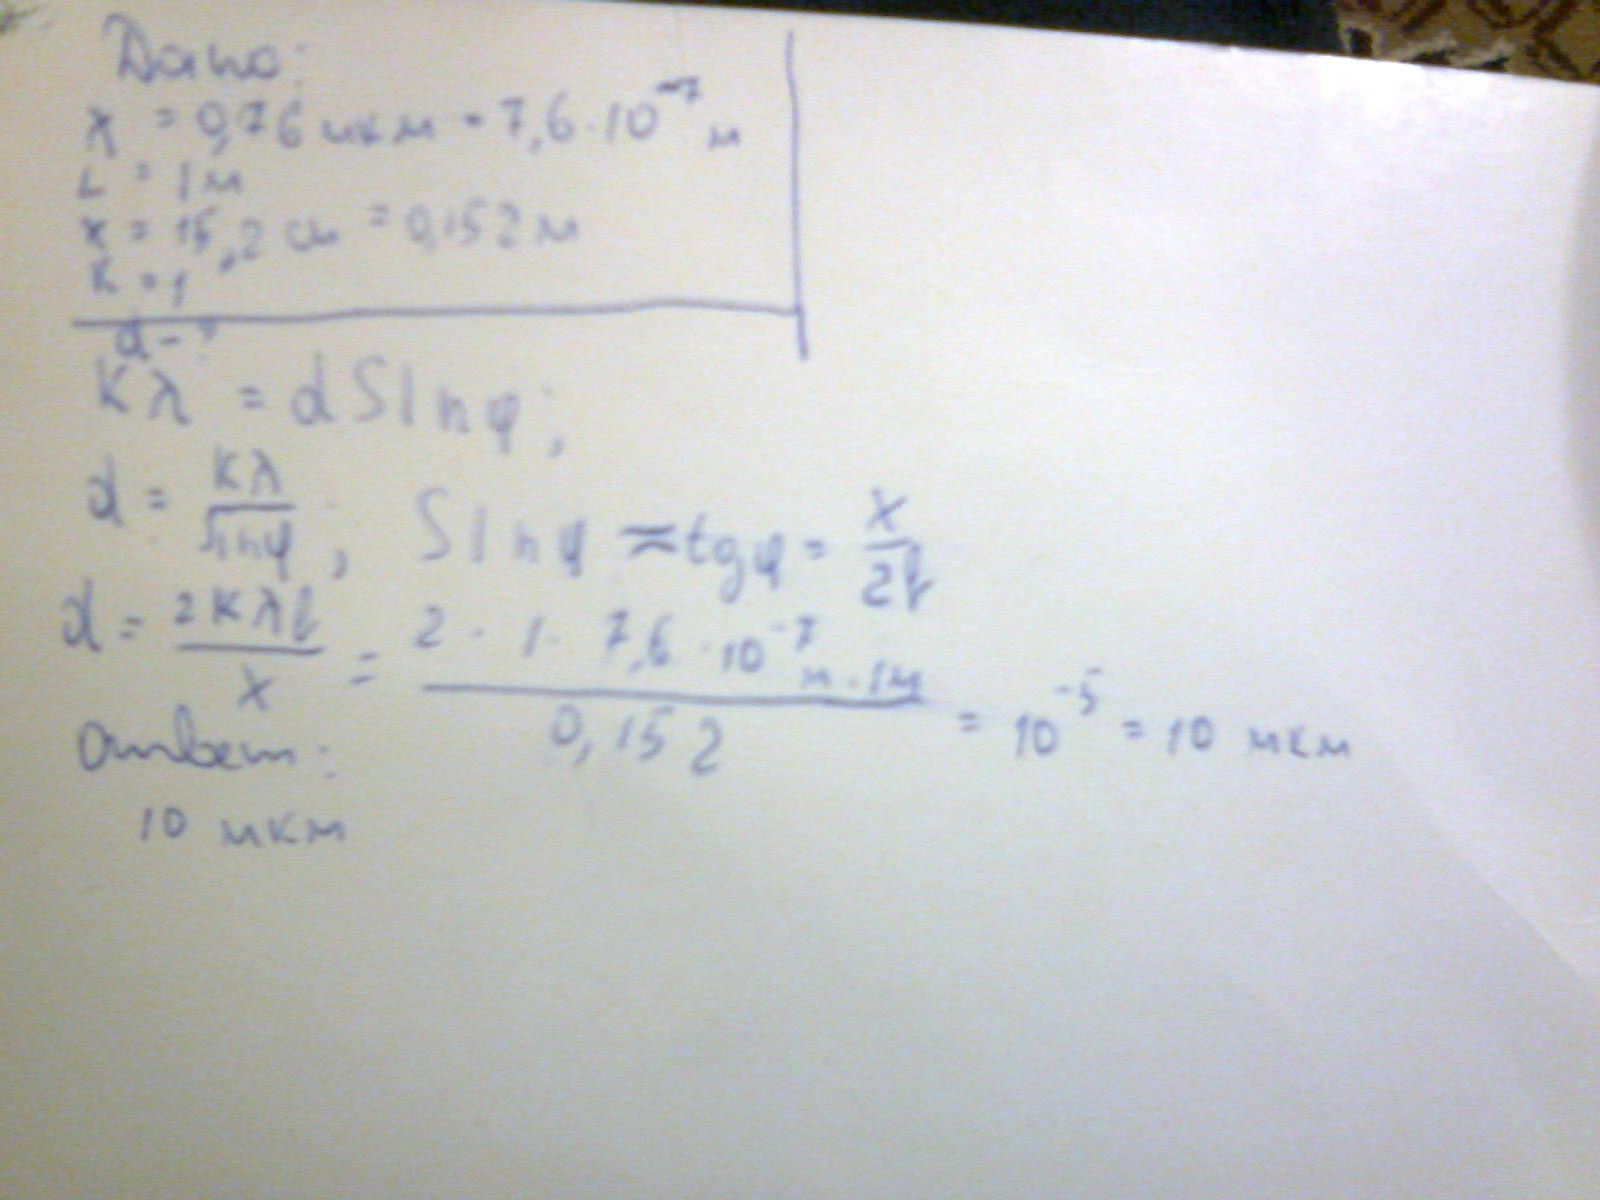 Дано:
λ = 0,76 мкм = 7,6 · 10⁻⁷ м
L = 1 м
x = 15,2 см = 0,152 м
K = 1
d - ?
Kλ = d Sinφ;
d = Kλ / sinφ ; Sinφ ≈ tgφ = x / 2l
d = 2Kλl / x = 2 · 1 · 7,6 · 10⁻⁷ м · 1м / 0,152 = 10⁻⁵ = 10 мкм
Ответ:
10 мкм